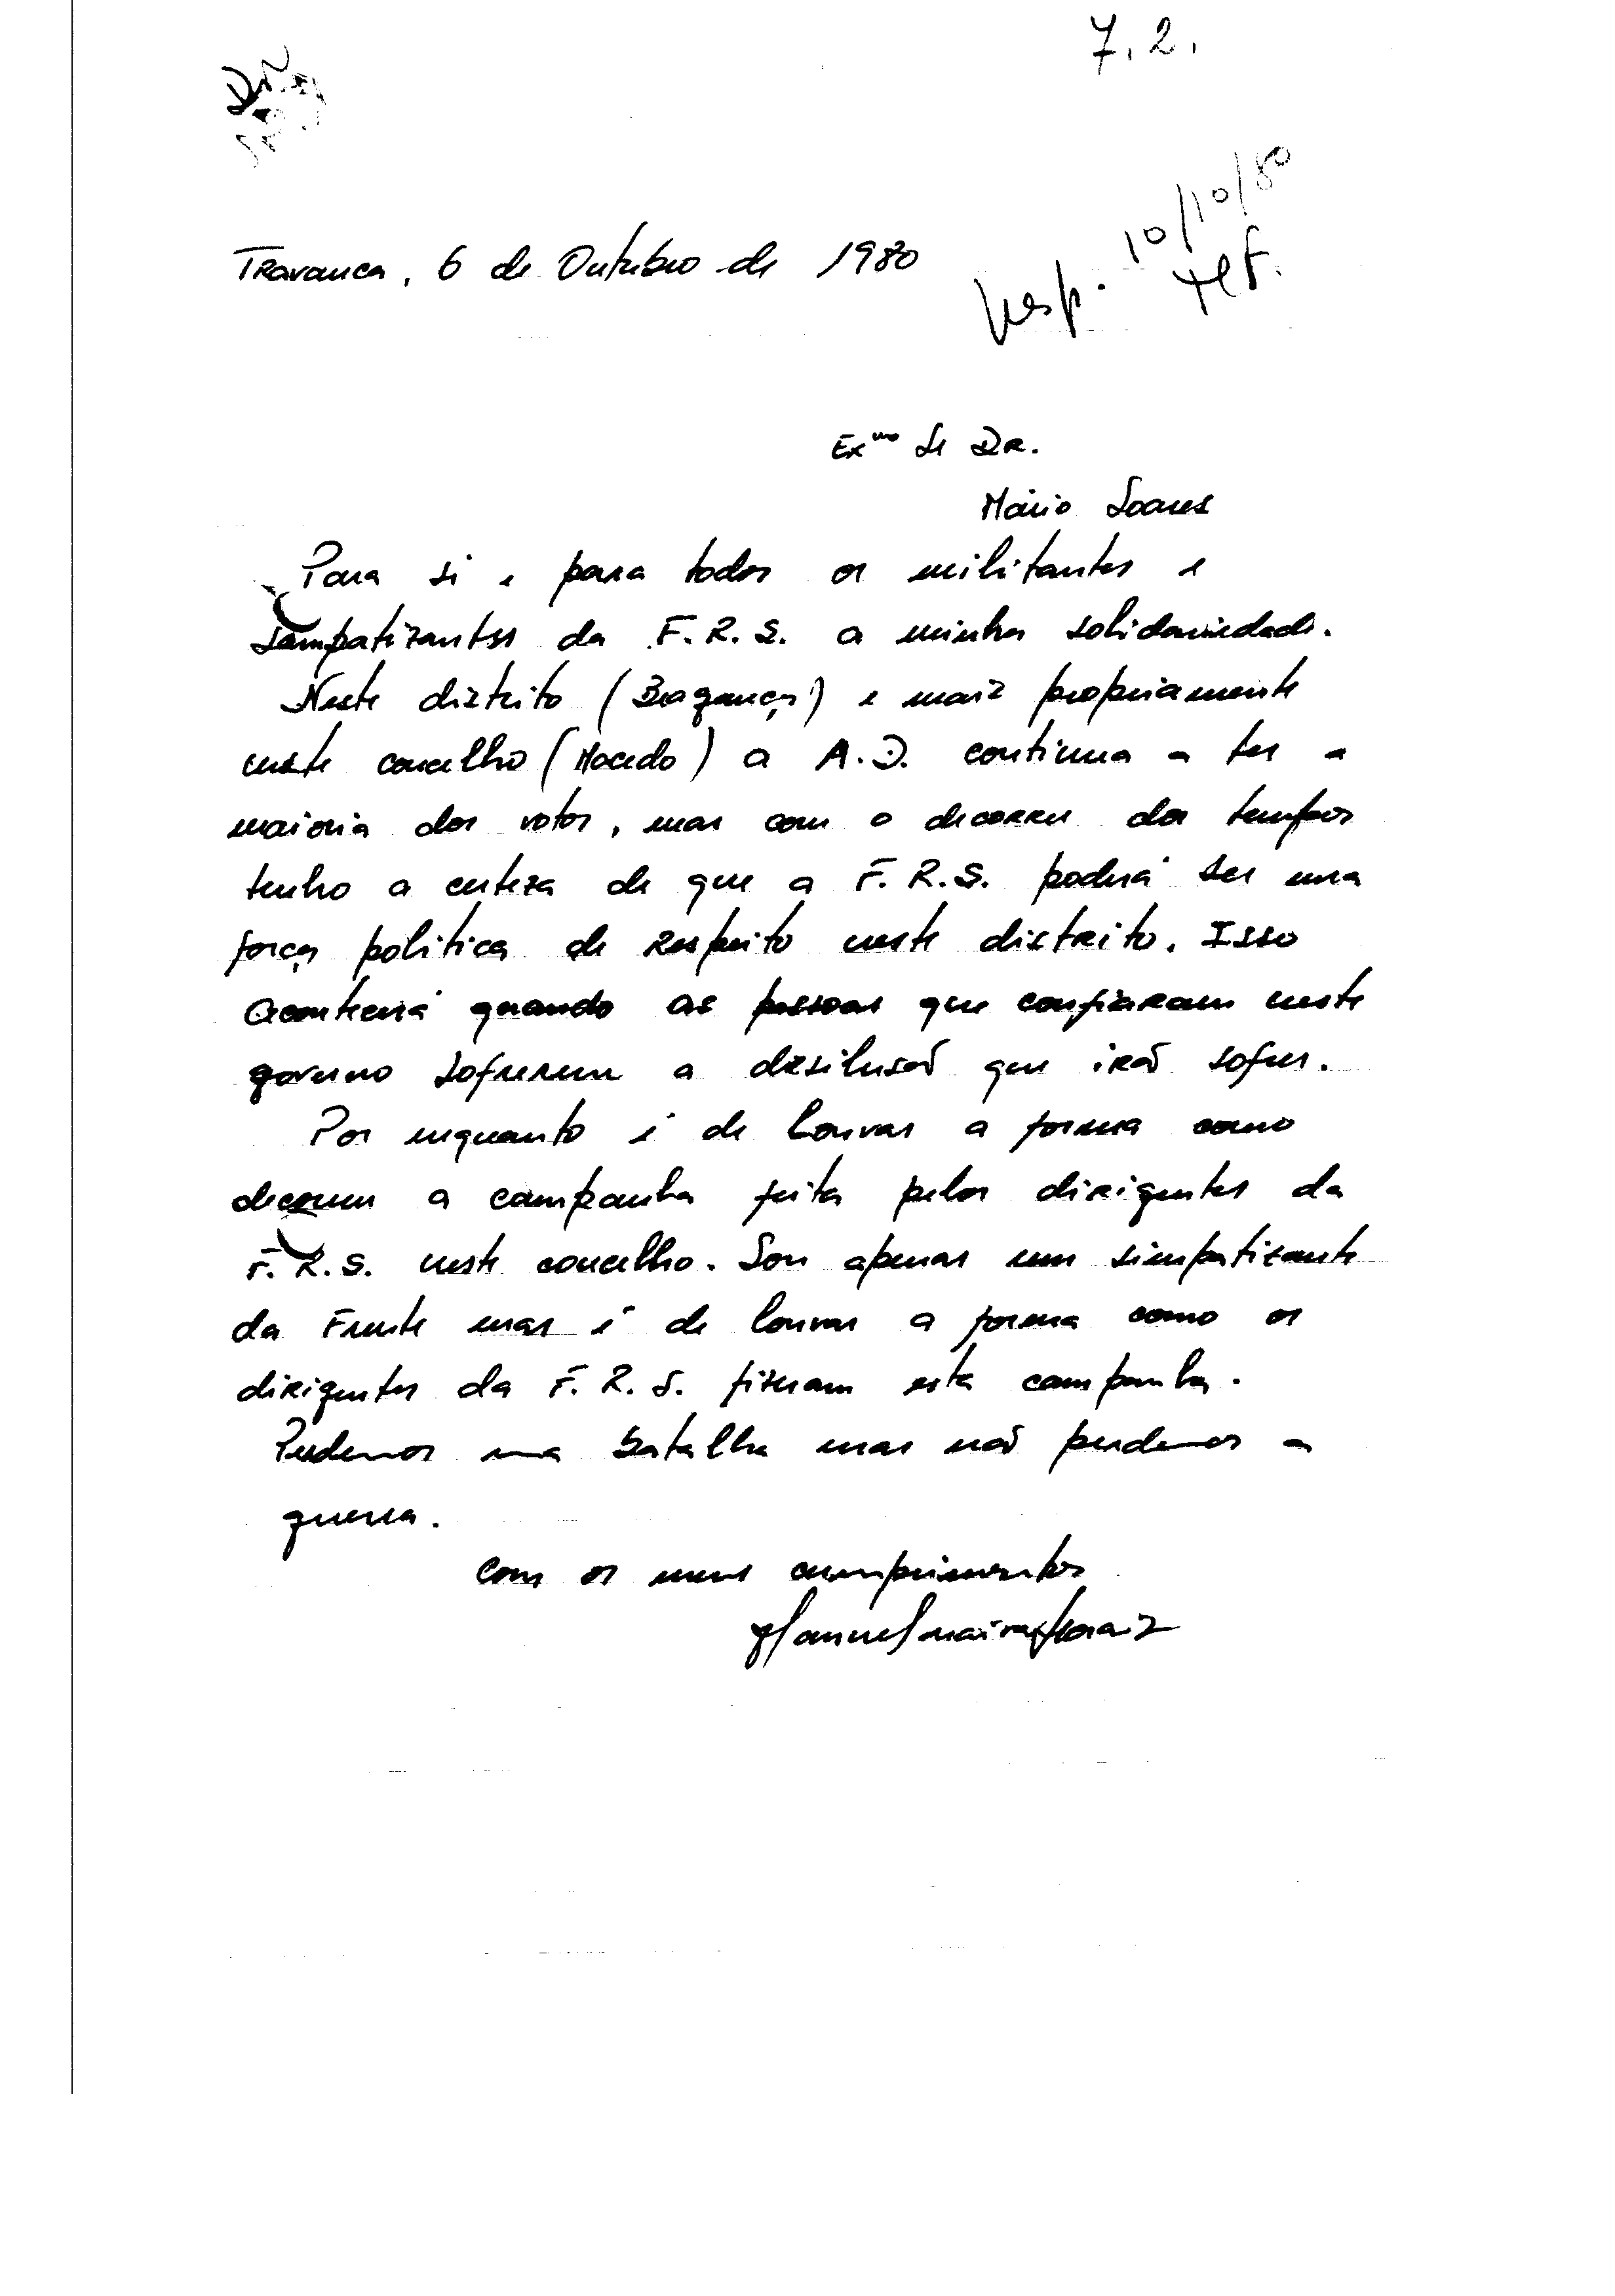 7.2.
Resp. 10/10/80
Telf.
Travanca, 6 de Outubro de 1980
Exmo Sr DR.
Mário Soares
Para si e para todos os militantes e
simpatizantes da F.R.S. a minha solidariedade.
Neste distrito (Bragança) e mais propriamente
neste concelho (Macedo) a A.D. continua a ter a
maioria dos votos, mas com o decorrer dos tempos
tenho a certeza de que a F.R.S. poderá ser uma
força politica de respeito neste distrito. Isso
acontecerá quando as pessoas que confiaram neste
governo sofrerem a desilusão que irão sofrer.
Por enquanto é de louvar a forma como
decorreu a campanha feita pelos dirigentes da
F.R.S. neste concelho. Sou apenas um simpatizante
da Frente mas é de louvar a forma como os
dirigentes da F.R.S. fizeram esta campanha.
Perdemos uma batalha mas não perdemos a
guerra.
Com os meus cumprimentos
Manuel